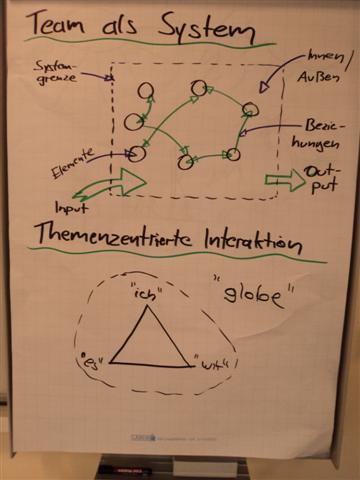 Team als System
System-
grenze
Innen/
Außen
Elemente
Bezie-
hungen
Input
Out-
put
Themenzentrierte Interaktion
"ich"
"globe"
"es"
"wir"